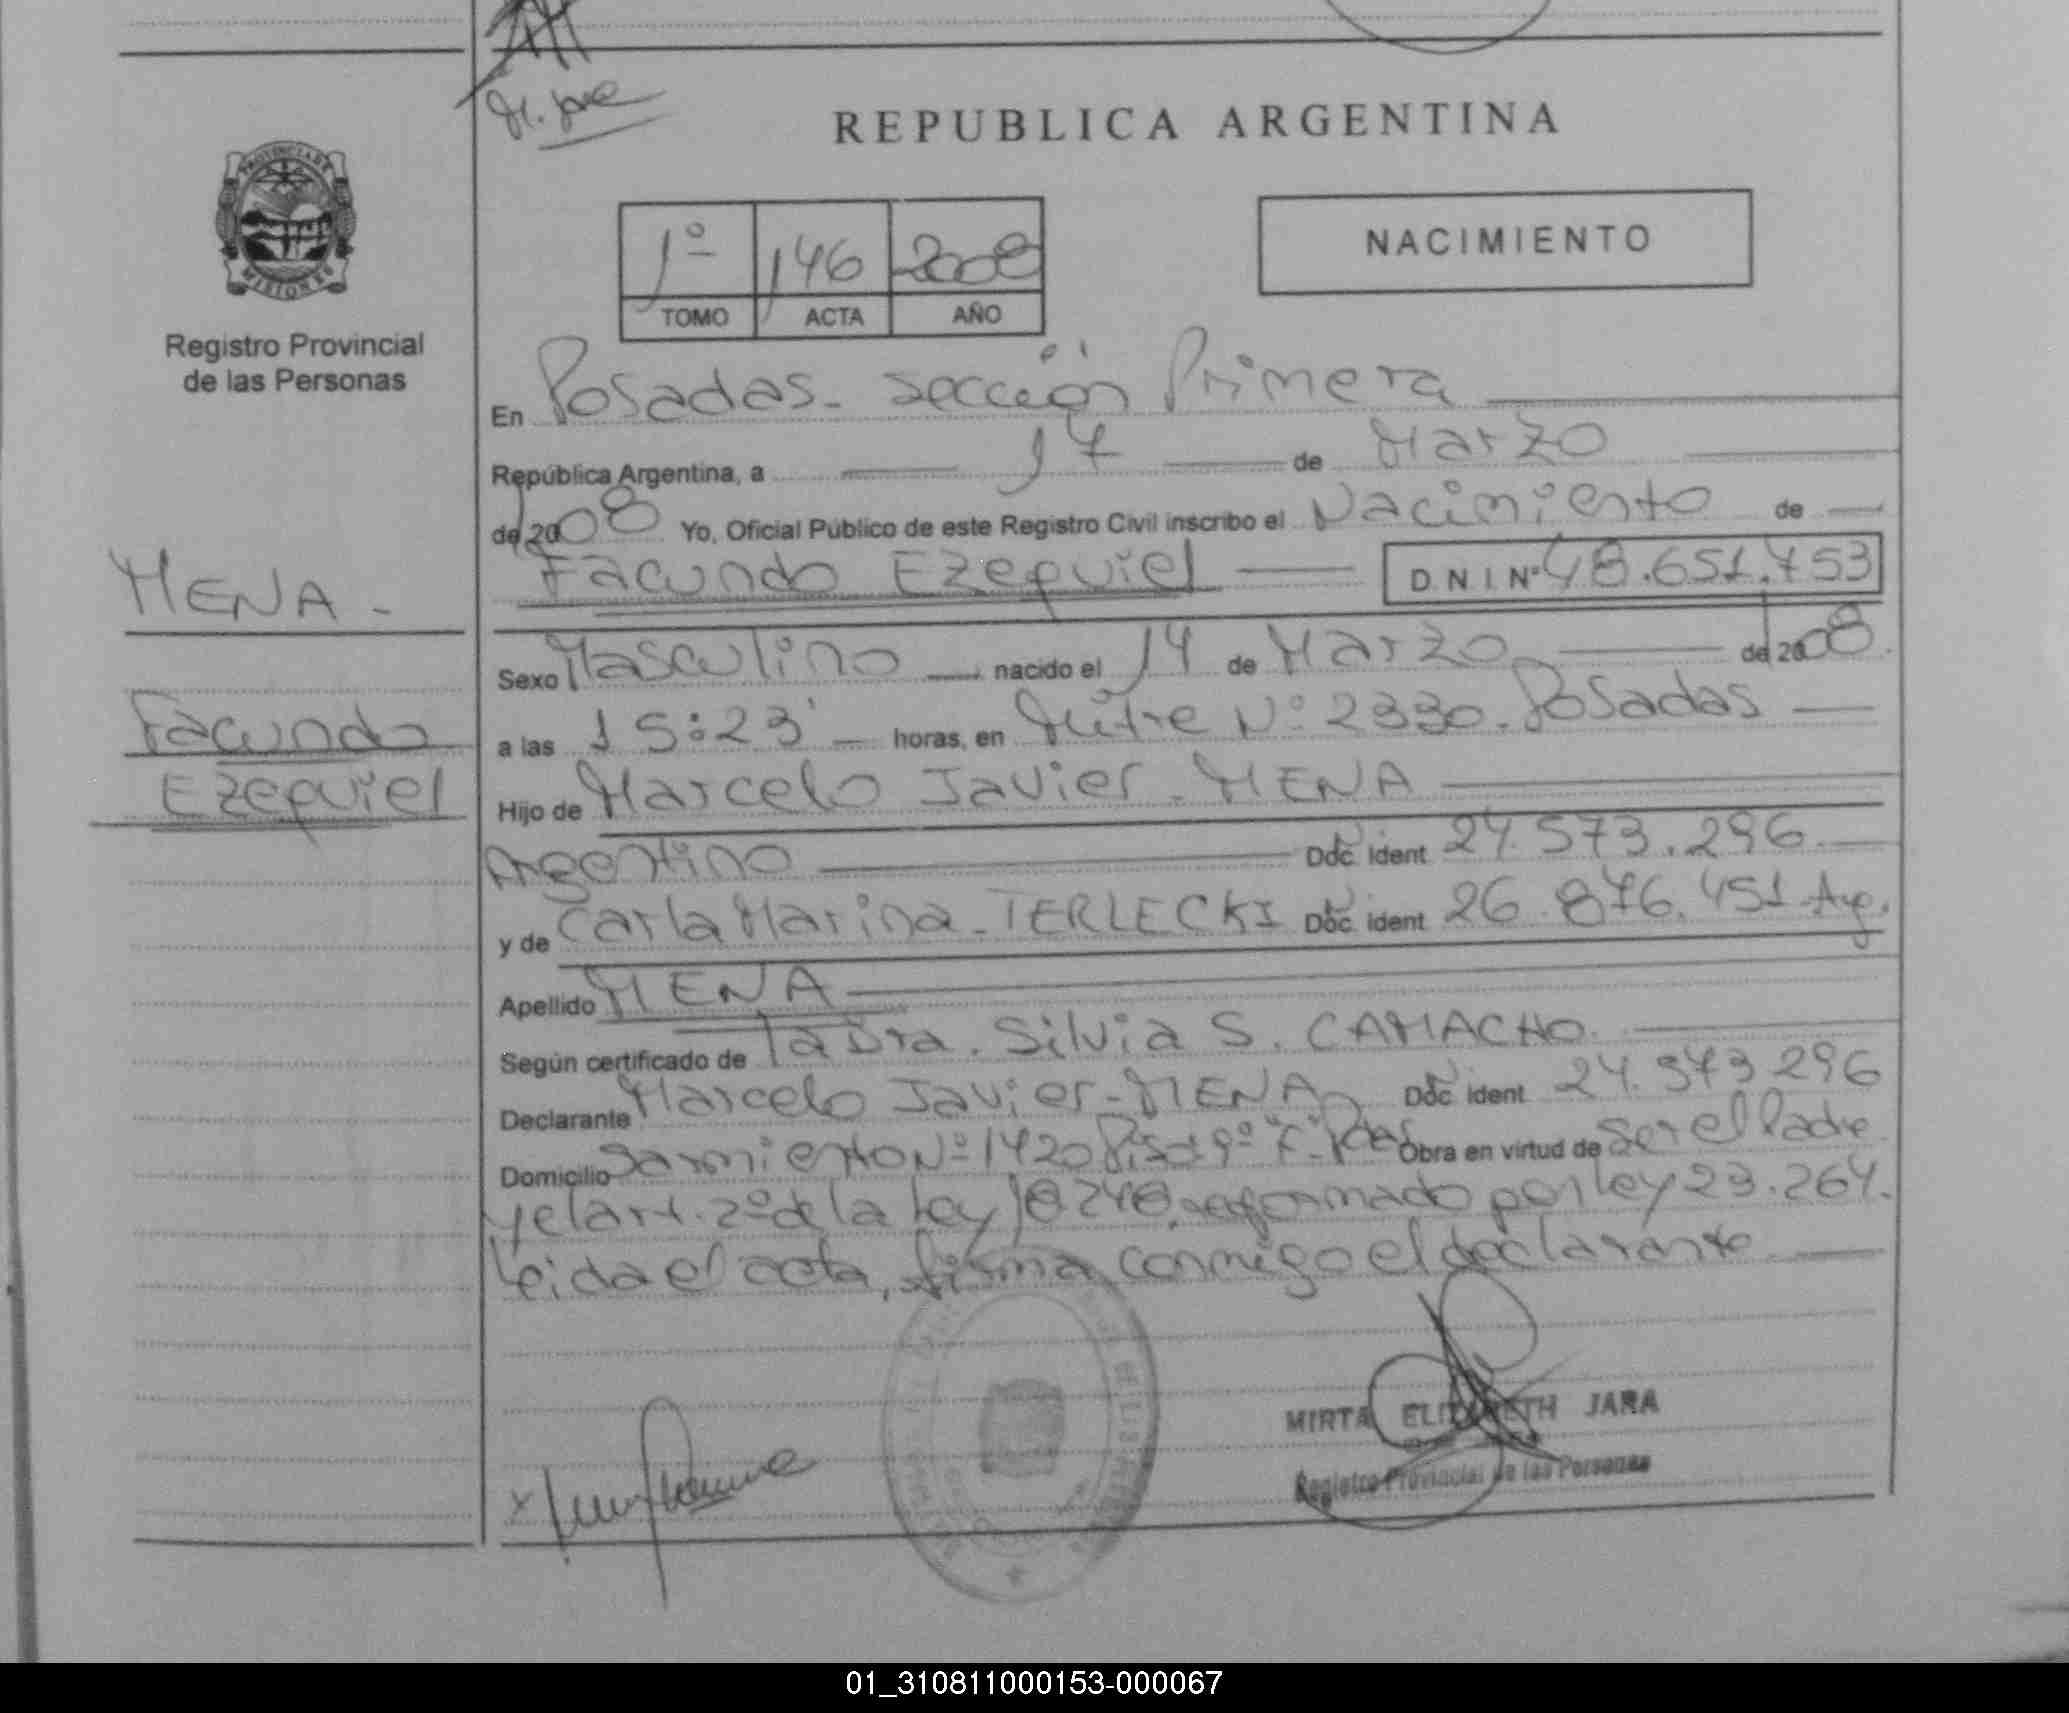 REPUBLICA ARGENTINA
PROVINCIA DE
MISIONES
Registro Provincial
de las Personas
NACIMIENTO
1º 146 2008
TOMO ACTA AÑO
En Posadas - sección Primera
República Argentina, a 17 de Marzo
de 2008 Yo, Oficial Público de este Registro Civil inscribo el Nacimiento de
Facundo Ezequiel D.N.I. Nº 48.651.753
MENA -
Facundo
Ezequiel
Sexo Masculino nacido el 14 de Marzo de 2008.
a las 15:23' horas, en Mitre Nº 2330. Posadas
Hijo de Marcelo Javier - MENA
Argentino Doc. Ident 24.573.296.
y de Carla Marina - TERLECKI Doc. Ident 26.876.451 Arg.
Apellido MENA
Según certificado de la Dra. Silvia S. CAMACHO.
Declarante Marcelo Javier - MENA Doc. Ident 24.573.296
Domicilio Sarmiento Nº 1420 Piso: 9º "F" - Pdas Obra en virtud de ser el Padre
y el art. 2º de la Ley 18.248, reformado por ley 23.264.
Leida el acta, firma conmigo el declarante
MIRTA ELIZABETH JARA
Registro Provincial de las Personas
01_310811000153-000067